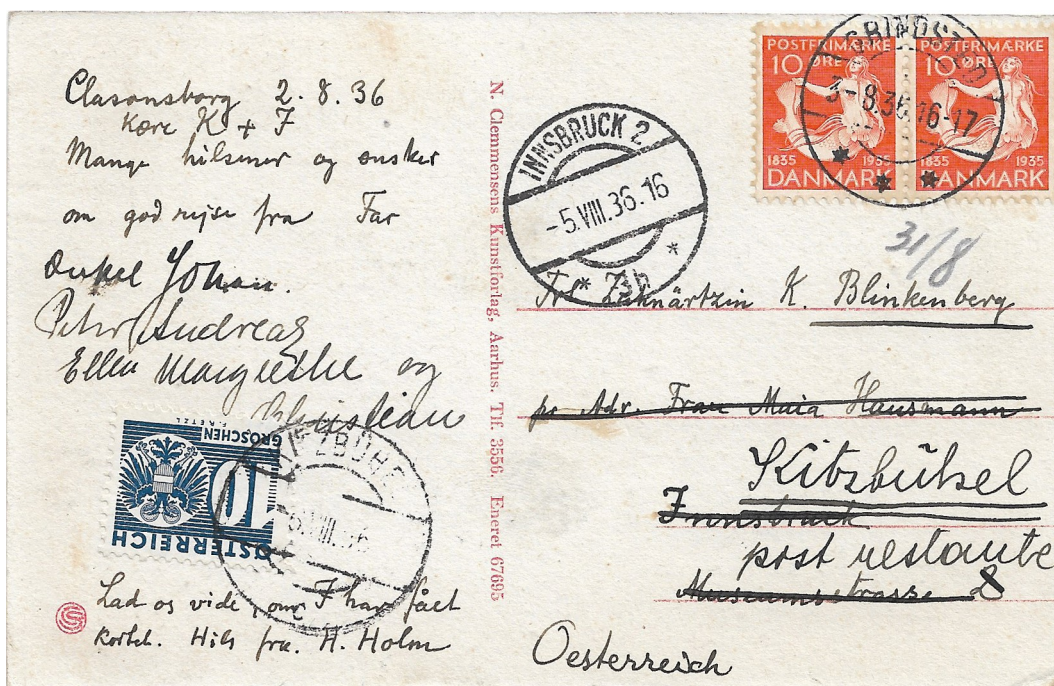 Clasonsborg 2.8.36
Kære K + F
Mange hilsner og ønsker
om god rejse fra Far
Onkel Johan.
Peter Andreas
Ellen Margrethe og
Christian
GROSCHEN
10
ÖSTERREICH
KITZBÜHEL
5.VIII.36
Lad os vide, om I har fået
kortet. Hils fra. H. Holm
N. Clemmensens Kunstforlag, Aarhus. Tlf. 3556. Eneret 67695
POSTFRIMÆRKE
10 ØRE
1835 1935
DANMARK
POSTFRIMÆRKE
10 ØRE
1835 1935
DANMARK
GRINDSTED
3-8.36.16-17
INNSBRUCK 2
-5.VIII.36.16
* 7b *
31/8
Frl. Zahnärtzin K. Blinkenberg
pr Adr. Frau Maia Hausmann
Kitzbühel
Innsbruck
post restante
Museumstrasse 8
Oesterreich